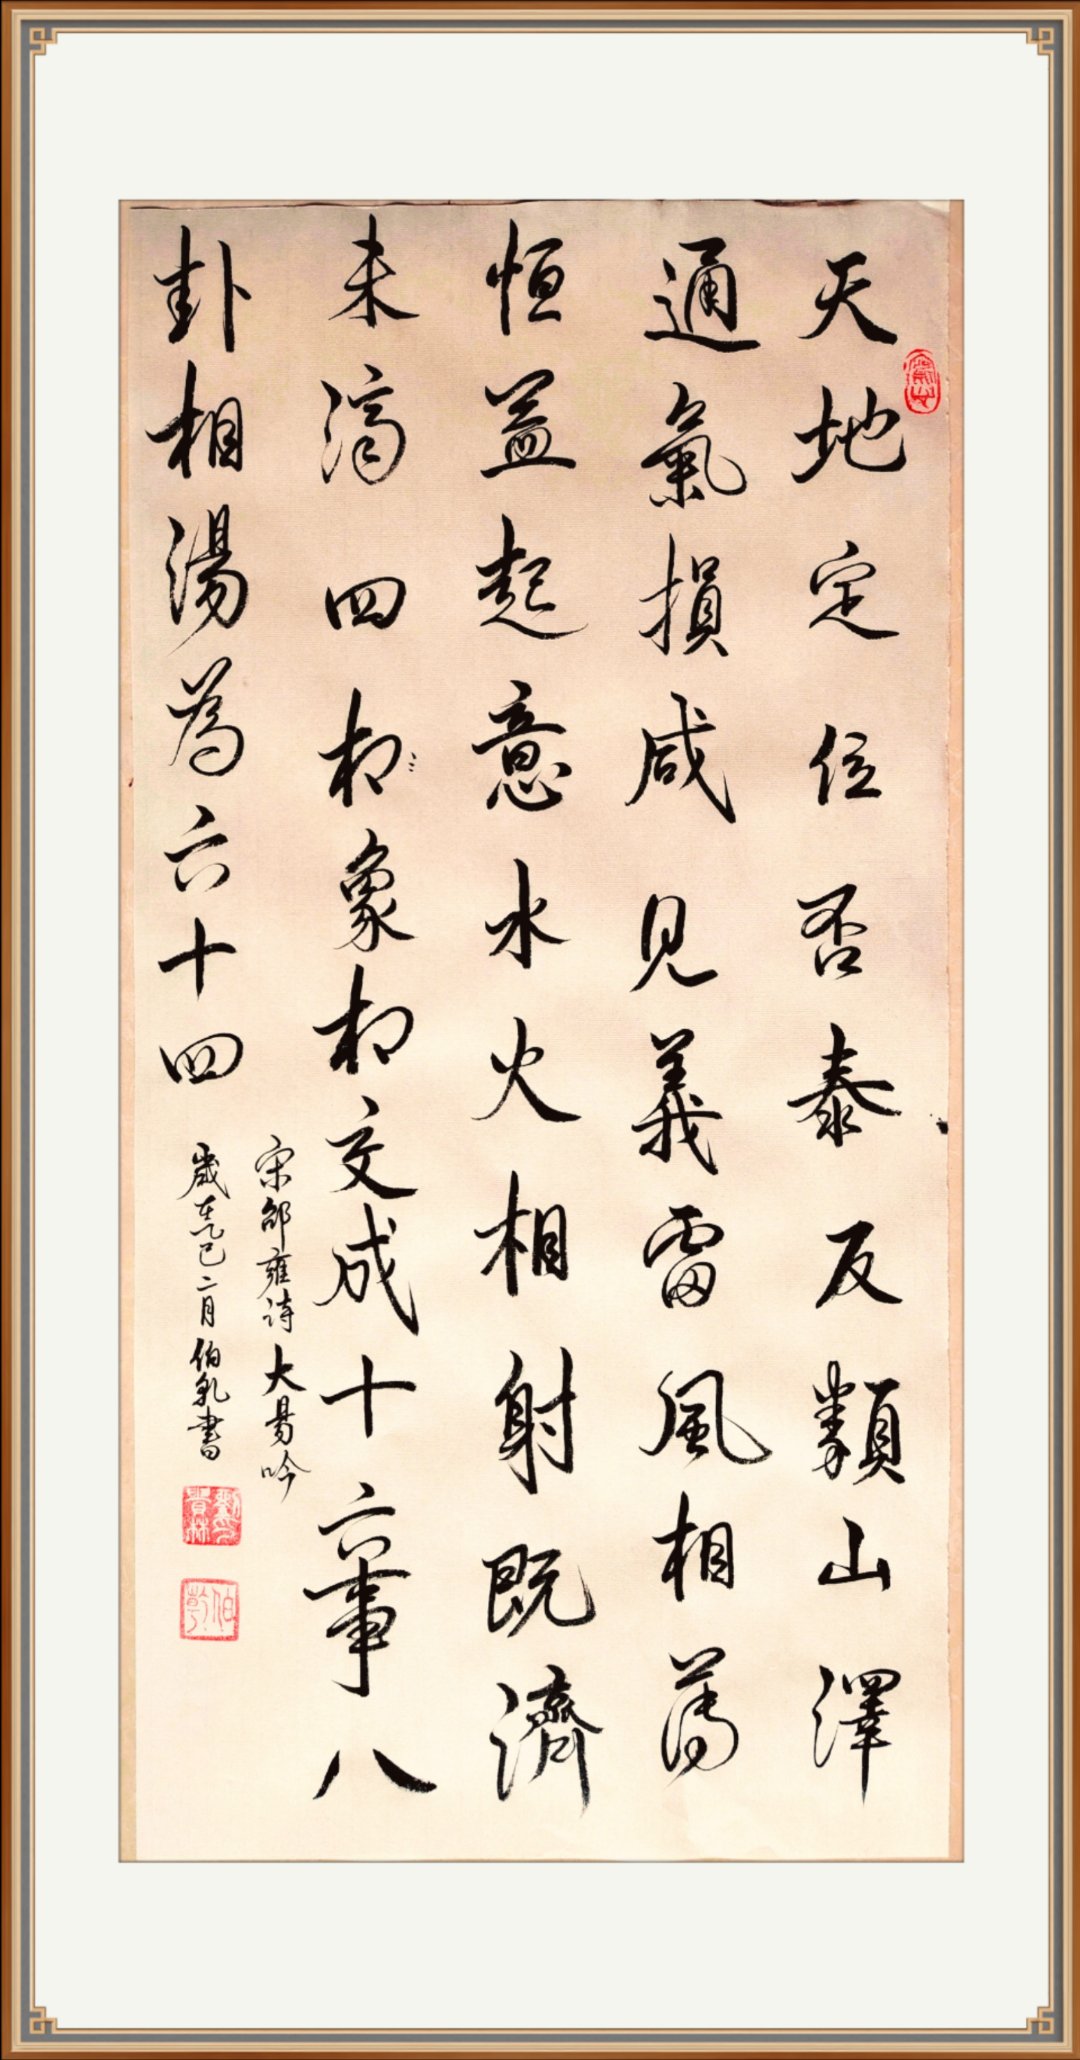 天地定位否泰反類山澤
通氣損咸見義雷風相薄
恒益起意水火相射既濟
未濟四相象相交成十六事八
卦相湯為六十四
宋邵雍詩大易吟
歲在乙巳二月伯乾書
伯乾